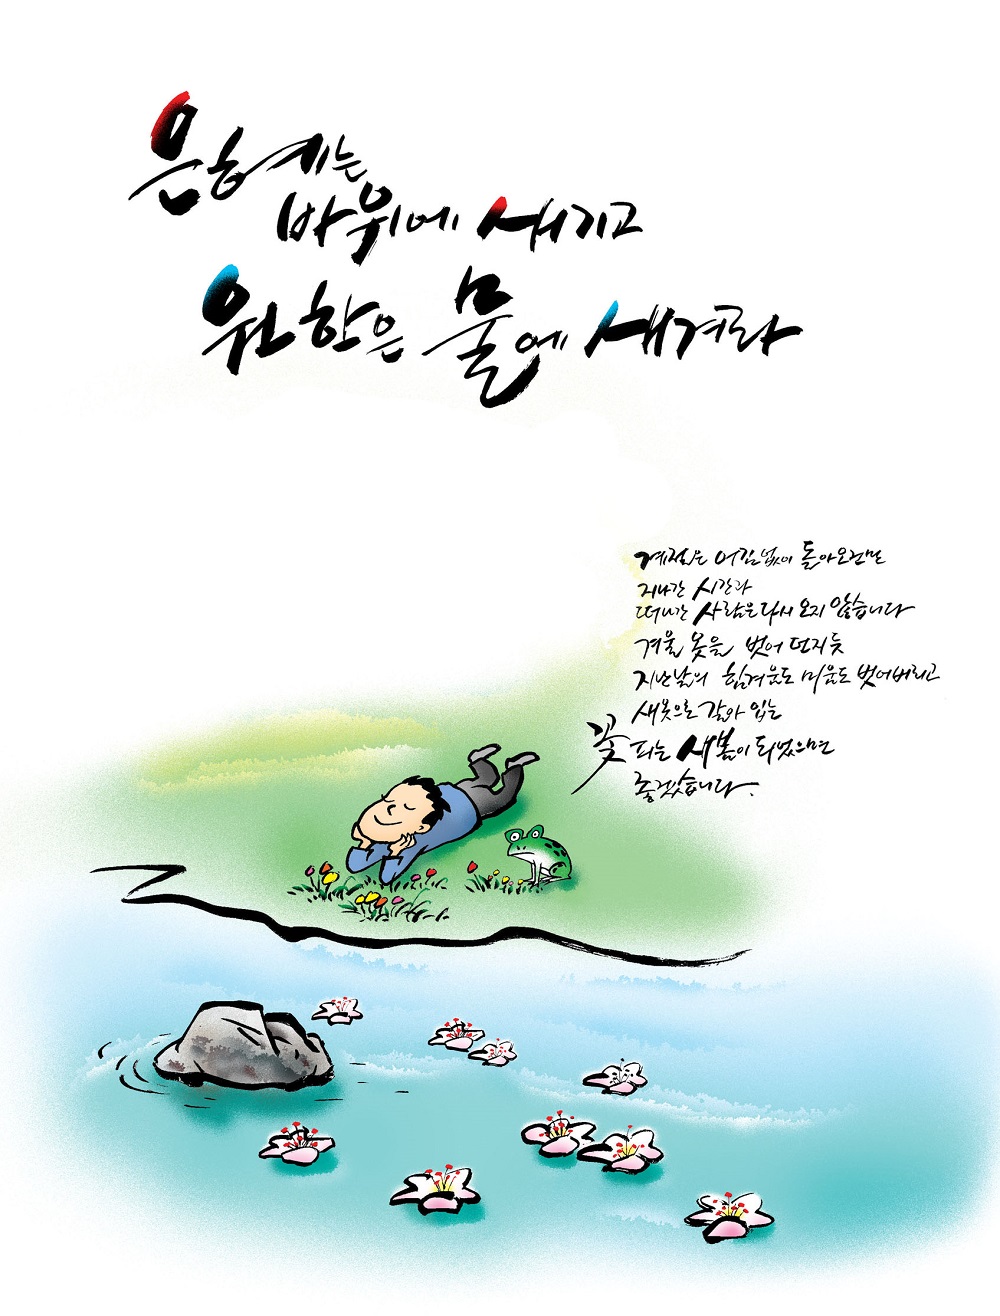 은혜는
바위에 새기고
원한은 물에 새겨라
계절은 어김없이 돌아오건만
지나간 시간과
떠나간 사람은 다시 오지 않습니다
겨울 옷을 벗어 던지듯
지난날의 힘겨움도 미움도 벗어버리고
새옷으로 갈아 입는
꽃 피는 새봄이 되었으면
좋겠습니다.